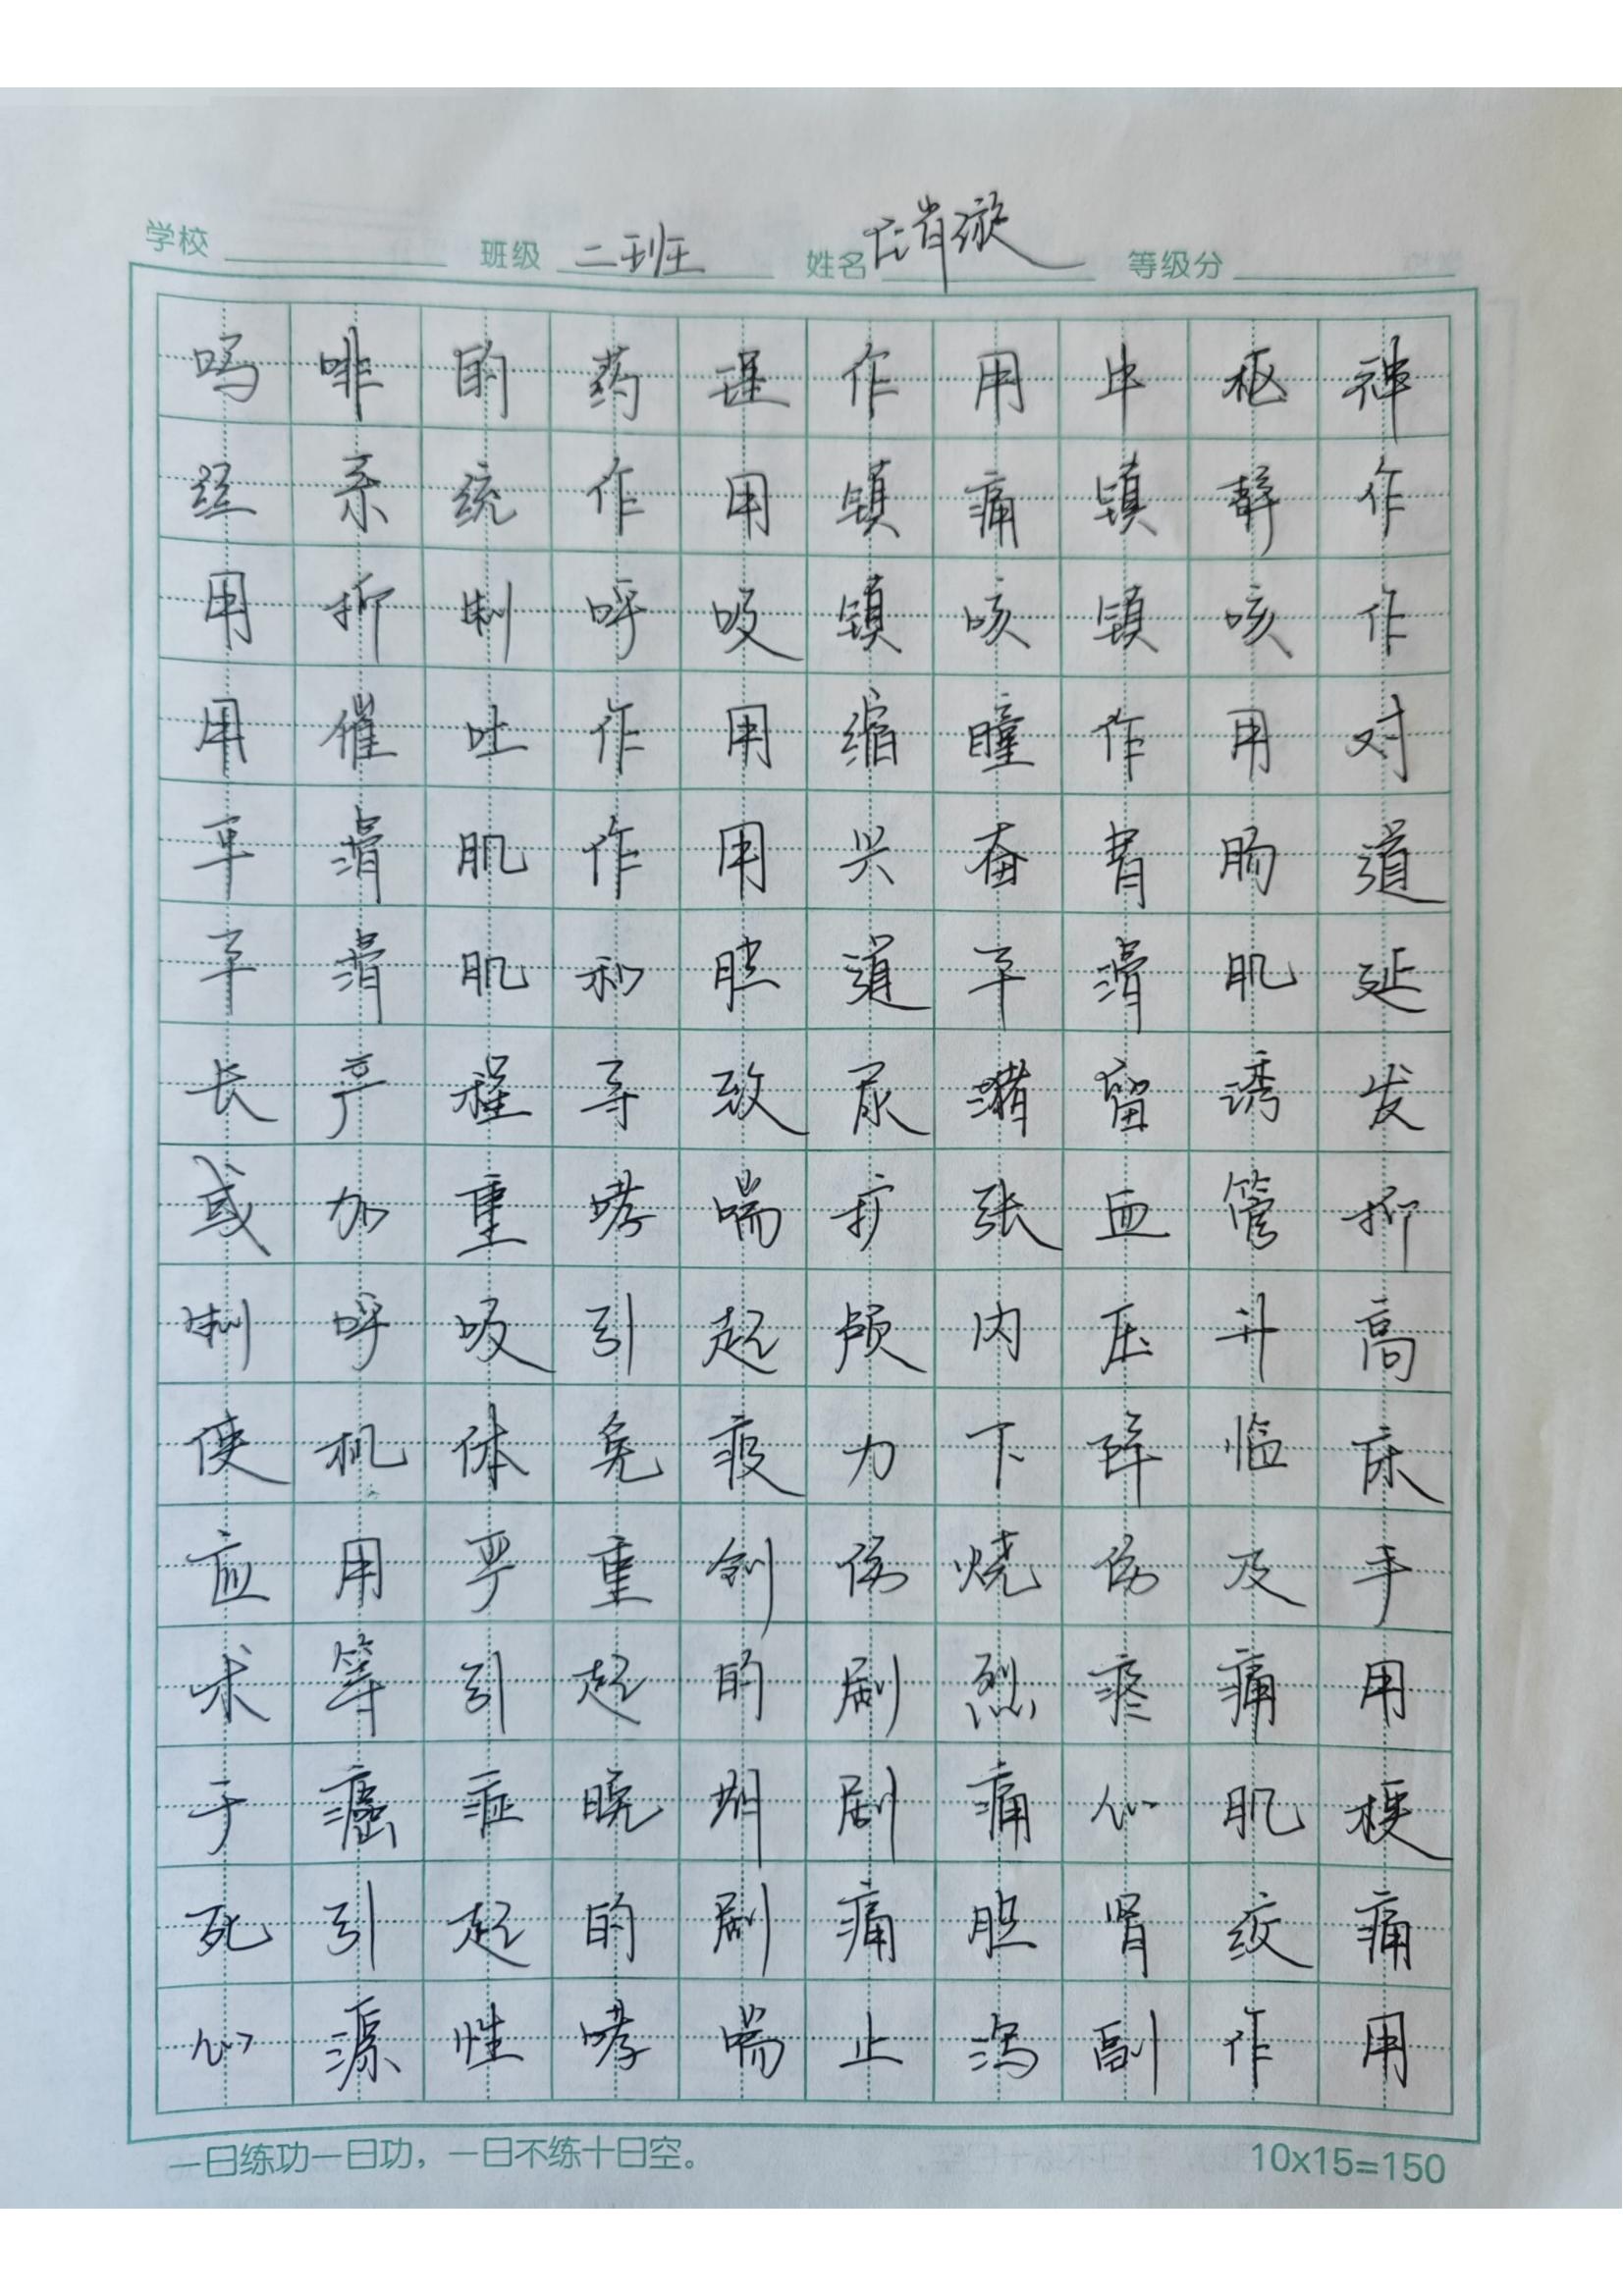 学校 班级 二班 姓名 庄肖漩 等级分
吗啡的药理作用中枢神
经系统作用镇痛镇静作
用抑制呼吸镇咳镇咳作
用催吐作用缩瞳作用对
平滑肌作用兴奋胃肠道
平滑肌和胆道平滑肌延
长产程导致尿潴留诱发
或加重哮喘扩张血管抑
制呼吸引起颅内压升高
使机体免疫力下降临床
应用严重创伤烧伤及手
术等引起的剧烈疼痛用
于癌症晚期剧痛心肌梗
死引起的剧痛胆肾绞痛
心源性哮喘止泻副作用
一日练功一日功，一日不练十日空。 10x15=150